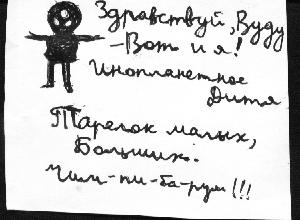 Здравствуй, Вуду
- Вот и я!
Инопланетное
Дитя
Тарелок малых,
Больших.
Чили-пи-ба-рум!!!